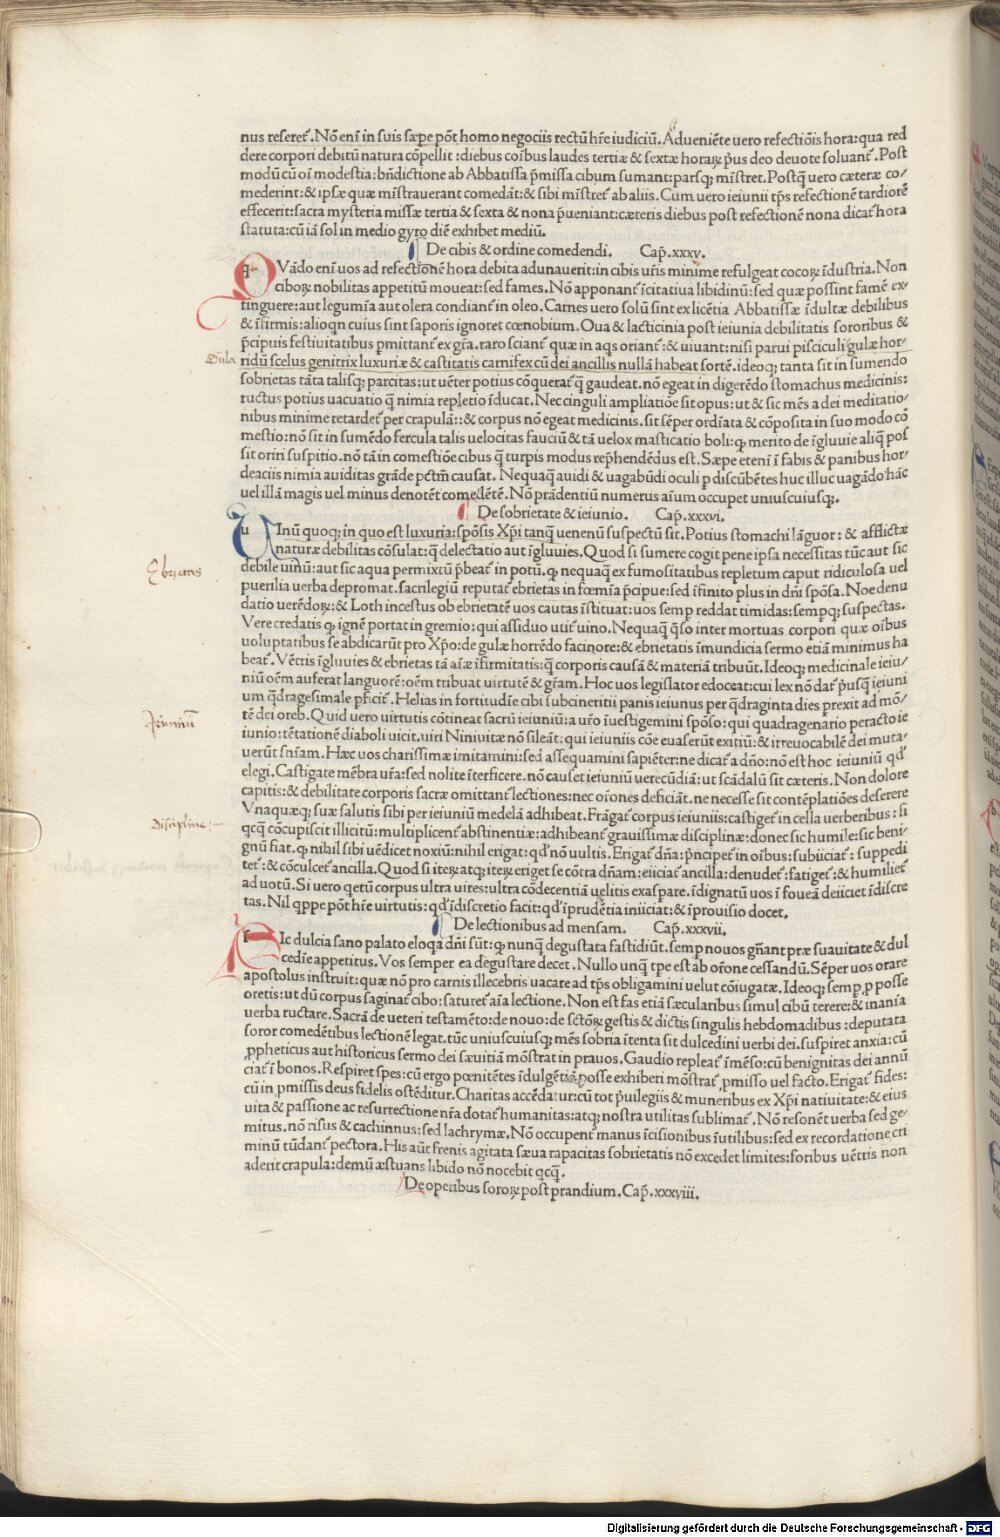 nus reseret᷑. Nō enī in suis sæpe põt homo negociis rectū hr̄e iudiciū. Adueniēte uero refectiōis hora: qua red
dere corpori debitū natura cōpellit: diebus coībus laudes tertiæ & sextæ horaꝝ p̄us deo deuote soluant᷑. Post
modū cū oī modestia: bn̄dictione ab Abbatissa p̄missa cibum sumant: parsq; mīstret. Postq̄ uero cæteræ co/
mederint: & ipsæ quæ mīstrauerant comedāt: & sibi mīstret᷑ ab aliis. Cum uero ieiunii tp̄s refectionē tardiorē
effecerit: sacra mysteria missæ tertia & sexta & nona p̄ueniant: cæteris diebus post refectionē nona dicat᷑ hora
statuta: cū iā sol in medio gyro diē exhibet mediū.
De cibis & ordine comedendi. Cap̄. xxxv.
q Vādo enī uos ad refectionē hora debita adunauerit: in cibis ur̄is minime refulgeat cocoꝝ īdustria. Non
ciboꝝ nobilitas appetitū moueat: sed fames. Nō apponant᷑ īcitatiua libidinū: sed quæ possint famē ex/
tinguere: aut legumīa aut olera condiant᷑ in oleo. Carnes uero solū sint ex licētia Abbatissæ īdultæ debilibus
& īfirmis: alioqn cuius sint saporis ignoret cœnobium. Oua & lacticinia post ieiunia debilitatis sororibus &
p̄cipuis festiuitatibus pmittant᷑ ex gr̄a. raro sciant᷑ quæ in aqs oriant᷑: & uiuant: nisi parui pisciculi gulæ hor/
Gula
ridū scelus genitrix luxuriæ & castitatis carnifex cū dei ancillis nullā habeat sortē. ideoq; tanta sit in sumendo
sobrietas tāta talisq; parcitas: ut uēter potius cōquerat᷑ q̄ gaudeat. nō egeat in digerēdo stomachus medicinis:
ructus potius uacuatio q̄ nimia repletio īducat. Nec cinguli ampliatiōe sit opus: ut & sic mēs a dei meditatio/
nibus minime retardet᷑ per crapulā:: & corpus nō egeat medicinis. sit sēper ordīata & cōposita in suo modo cō
mestio: nō sit in sumēdo fercula talis uelocitas fauciū & tā uelox masticatio boli: ꝙ merito de īgluuie aliq̄ pos
sit oriri suspitio. nō tā in comestiōe cibus q̄ turpis modus rep̄hendēdus est. Sæpe etenī ī fabis & panibus hor/
deaciis nimia auiditas grāde pctm̄ causat. Nequaq̄ auidi & uagabūdi oculi p discūbētes huc illuc uagādo hāc
uel illā magis uel minus denotēt comedētē. Nō prādentiū numerus aīum occupet uniuscuiusq;.
De sobrietate & ieiunio. Cap̄. xxxvi.
u Inū quoq; in quo est luxuria: spōsis Xp̄i tanq̄ uenenū suspectū sit. Potius stomachi lāguor: & afflictæ
naturæ debilitas cōsulat: q̄ delectatio aut īgluuies. Quod si sumere cogit pene ipsa necessitas tūc aut sic
Ebrietas
debile uinū: aut sic aqua permixtū p̄beat᷑ in potū. ꝙ nequaq̄ ex fumositatibus repletum caput ridiculosa uel
puerilia uerba depromat. sacrilegiū reputat᷑ ebrietas in fœmīa p̄cipue: sed īfinito plus in dn̄i spōsa. Noe denu
datio uerēdoꝝ: & Loth incestus ob ebrietatē uos cautas īstituat: uos semp reddat timidas: sempq; suspectas.
Vere credatis ꝙ ignē portat in gremio: qui assiduo utit᷑ uino. Nequaq̄ q̄so inter mortuas corpori quæ oībus
uoluptatibus se abdicarūt pro Xp̄o: de gulæ horrēdo facinore: & ebrietatis īmundicia sermo etiā minimus ha
beat᷑. Vētris īgluuies & ebrietas tā aīæ īfirmitatis: q̄ corporis causā & materiā tribuūt. Ideoq; medicinale ieiu/
niū oēm auferat languorē: oēm tribuat uirtutē & gr̄am. Hoc uos legislator edoceat: cui lex nō dat᷑ p̄usq̄ ieiuni
um q̄dragesimale pficit᷑. Helias in fortitudīe cibi subcineritii panis ieiunus per q̄draginta dies prexit ad mō/
Ieiuniū
tē dei oreb. Quid uero uirtutis cōtineat sacrū ieiuniū: a ur̄o īuestigemini spōso: qui quadragenario peracto ie
iunio: tētationē diaboli uicit. uiri Niniuitæ nō sileāt: qui ieiuniis cōe euaserūt exitiū: & irreuocabilē dei muta/
uerūt sn̄iam. Hæc uos charissimæ imitamini: sed assequamini sapiēter: ne dicat᷑ a dn̄o: nō est hoc ieiuniū qd̄
elegi. Castigate mēbra ur̄a: sed nolite īterficere. nō causet ieiuniū uerecūdiā: ut scādalū sit cæteris. Non dolore
capitis: & debilitate corporis sacræ omittant᷑ lectiones: nec or̄ones deficiāt. ne necesse sit contēplatiōes deserere
Disciplina
Vnaquæq; suæ salutis sibi per ieiuniū medelā adhibeat. Frāgat᷑ corpus ieiuniis: castiget᷑ in cella uerberibus: si
qcq̄ cōcupiscit illicitū: multiplicent᷑ abstinentiæ: adhibeant᷑ grauissimæ disciplinæ: donec sic humile: sic beni/
gnū fiat. ꝙ nihil sibi uēdicet noxiū: nihil erigat: qd̄ nō uultis. Erigat᷑ dn̄a: p̄ncipet᷑ in oībus: subiiciat᷑: suppedi
tet᷑: & cōculcet᷑ ancilla. Quod si iteꝝ atq; iteꝝ eriget se cōtra dn̄am: eiiciat᷑ ancilla: denudet᷑: fatiget᷑: & humiliet᷑
ad uotū. Si uero qerū corpus ultra uires: ultra cōdecentiā uelitis exaspare. īdignatū uos ī foueā deiiciet īdiscre
tas. Nil qppe põt hr̄e uirtutis: qd̄ īdiscretio facit: qd̄ īprudētia iniiciat: & īprouisio docet.
De lectionibus ad mensam. Cap̄. xxxvii.
s Ic dulcia sano palato eloqa dn̄i sūt: ꝙ nunq̄ degustata fastidiūt. semp nouos gn̄ant præ suauitate & dul
cedīe appetitus. Vos semper ea degustare decet. Nullo unq̄ tpe est ab or̄one cessandū. Sēper uos orare
apostolus instruit: quæ nō pro carnis illecebris uacare ad tp̄s obligamini uelut cōiugatæ. Ideoq; semp, p posse
oretis: ut dū corpus saginat᷑ cibo: saturet᷑ aīa lectione. Non est fas etiā sæcularibus simul cibū terere: & inania
uerba ructare. Sacrā de ueteri testamēto: de nouo: de sctōꝝ gestis & dictis singulis hebdomadibus: deputata
soror comedētibus lectionē legat. tūc uniuscuiusq; mēs sobria ītenta sit dulcedini uerbi dei. suspiret anxia: cū
ꝓpheticus aut historicus sermo dei sæuitiā mōstrat in prauos. Gaudio repleat᷑ īmēso: cū benignitas dei annū
ciat᷑ ī bonos. Respiret spes: cū ergo pœnitētes īdulgētiā posse exhiberi mōstrat᷑ ꝓmisso uel facto. Erigat᷑ fides:
cū in ꝓmissis deus fidelis ostēditur. Charitas accēdatur: cū tot p̄uilegiis & muneribus ex Xp̄i natiuitate: & eius
uita & passione ac resurrectione nr̄a dotat᷑ humanitas: atq; nostra utilitas sublimat᷑. Nō resonēt uerba sed ge/
mitus. nō risus & cachinnus: sed lachrymæ. Nō occupent᷑ manus īcisionibus īutilibus: sed ex recordatione cri
minū tūdant᷑ pectora. His aūt frenis agitata sæua rapacitas sobrietatis nō excedet limites: foribus uētris non
aderit crapula: demū æstuans libido nō nocebit qcq̄.
De operibus soroꝝ post prandium. Cap̄. xxxviii.
Digitalisierung gefördert durch die Deutsche Forschungsgemeinschaft - DFG